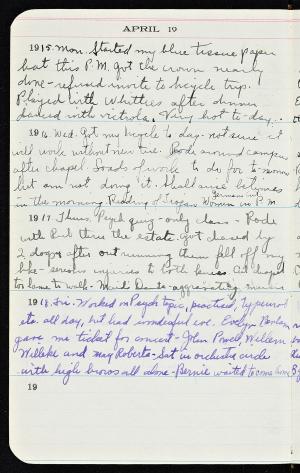 APRIL 19
1915. Mon. Started my blue tissue paper
hat this P.M. got the crown nearly
done - refused invite to bicycle trip.
Played with Whitties after dinner
danced with victrola. Very hot to-day.
1916 Wed. Got my bicycle to-day - not sure it
will work without new tire. Rode around campus
after chapel. Loads of work to do for to-morrow
but am not doing it.
in the morning. Reading of Trojan Women in P.M.
1917. Thurs. Psych quiz - only class - Rode
with Ruth thru the estate. got chased by
2 dogs after out running them fell off my
bike - serious injuries to both knees
to lame to walk.
1918. Fri. - Worked on Psych topic, practiced,
etc. all day, but had wonderful eve. Evelyn
gave me ticket for concert - John Powell, Willem
Willeke and May Roberts - Sat in orchestra circle
with high brows all alone - Bernie waited to come home
19